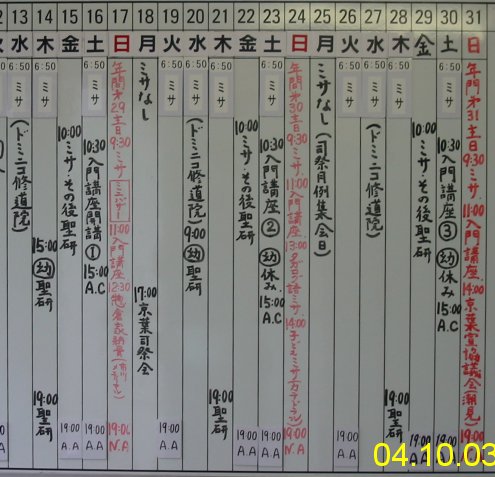 13 14 15 16 17 18 19 20 21 22 23 24 25 26 27 28 29 30 31
水 木 金 土 日 月 火 水 木 金 土 日 月 火 水 木 金 土 日
6:50 ミサ (ドミニコ修道院)
6:50 ミサ 15:00 幼 聖研 19:00 聖研
6:50 ミサ 10:00 ミサ・その後聖研 19:00 A.A
6:50 ミサ 10:30 入門講座開講 ① 15:00 A.C 19:00 A.A
年間第29主日 9:30 ミサ ミニバザー 11:00 入門講座 12:30 19:00 N.A
ミサなし 17:00 京葉司祭会
6:50 ミサ 19:00 A.A
6:50 ミサ (ドミニコ修道院) 9:00 幼 聖研
6:50 ミサ 19:00 聖研
6:50 ミサ 10:00 ミサ・その後聖研 19:00 A.A
6:50 ミサ 10:30 入門講座 ② 幼 休み 15:00 A.C 19:00 A.A
年間第30主日 9:30 ミサ 11:00 入門講座 13:00 タガログ語ミサ 14:00 19:00 N.A
ミサなし (司祭月例集会日)
6:50 ミサ 19:00 A.A
6:50 ミサ (ドミニコ修道院)
6:50 ミサ 19:00 聖研
6:50 ミサ 10:00 ミサ・その後聖研 19:00 A.A
6:50 ミサ 10:30 入門講座 ③ 幼 休み 15:00 A.C 19:00 A.A
年間第31主日 9:30 ミサ 11:00 入門講座 14:00 京葉宣協議会(潮見) 19:00
04.10.03